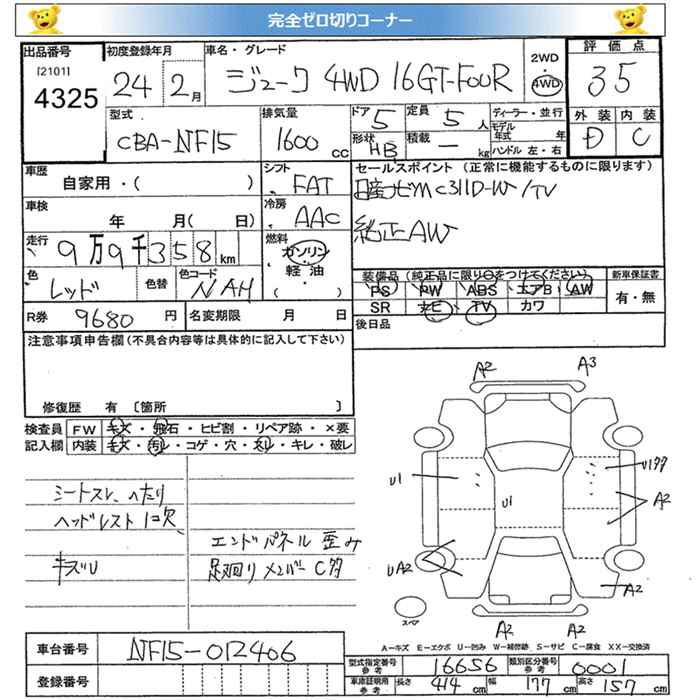 完全ゼロ切りコーナー
出品番号
[2101]
4325
初度登録年月
24 年 2 月
車名・グレード
ジューク 4WD 16GT-FOUR
2WD
・
4WD
評価点
3.5
外装 内装
D C
型式
CBA-NF15
排気量
1600 cc
ドア 5
形状 HB
定員 5 人
積載 — kg
ディーラー・並行
モデル年式 年
ハンドル 左・右
車歴
自家用・( )
シフト
FAT
セールスポイント (正常に機能するものに限ります)
日産ナビMC311D-W/TV
純正AW
車検
年 月( 日)
冷房
AAC
走行
9万9千358km
燃料
ガソリン
軽油
( )
色
レッド
色替
色コード
NAH
装備品 (純正品に限り○をつけてください)
PS PW ABS エアB AW
SR ナビ TV カワ
新車保証書
有・無
R券 9680 円
名変期限 月 日
後日品
注意事項申告欄 (不具合内容等は具体的に記入して下さい)
修復歴 有 〔箇所 〕
検査員記入欄
FW キズ・飛石・ヒビ割・リペア跡・×要
内装 キズ・汚レ・コゲ・穴・スレ・キレ・破レ
シートスレ、ヘたり
ヘッドレスト1コ欠
キズU
エンドパネル 歪み
足廻りメンバーC多
A2 A3
U1 U1 U1
A2
UA2
A2
A2 A2
スペア
A-キズ E-エクボ U-凹み W-補修跡 S-サビ C-腐食 XX-交換済
車台番号 NF15-012406
登録番号
型式指定番号 参考 16656
類別区分番号 参考 0001
車庫証明用 参考 長さ 414 cm 幅 177 cm 高さ 157 cm